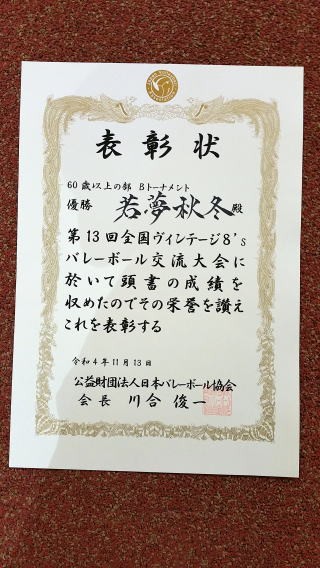 表彰状
60歳以上の部 Bトーナメント
優勝 若夢秋冬殿
第13回全国ヴィンテージ8's
バレーボール交流大会に
於いて頭書の成績を
収めたのでその栄誉を讃え
これを表彰する
令和4年11月13日
公益財団法人日本バレーボール協会
会長 川合俊一